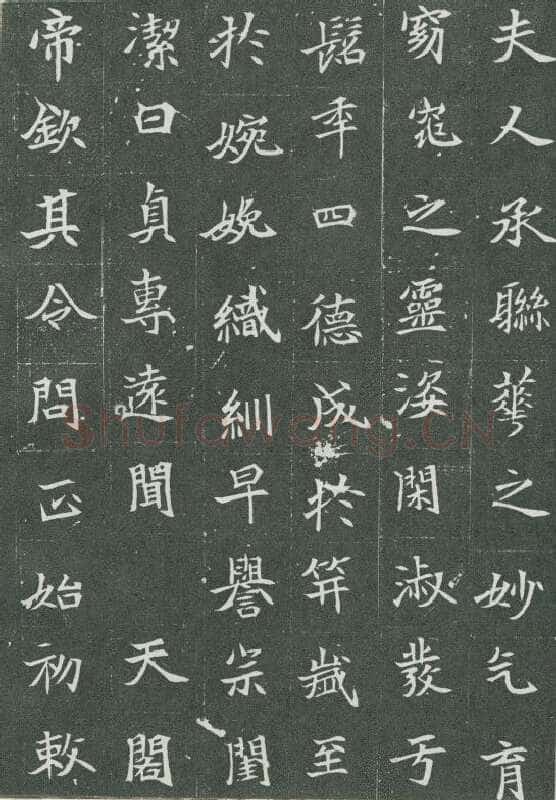 夫人承聯華之妙气育
窈窕之靈姿閑淑發于
髫年四德成於笄歲至
於婉娩織紃早譽宗閨
潔白貞專遠聞 天閣
帝欽其令問正始初敕
Shufawang.CN